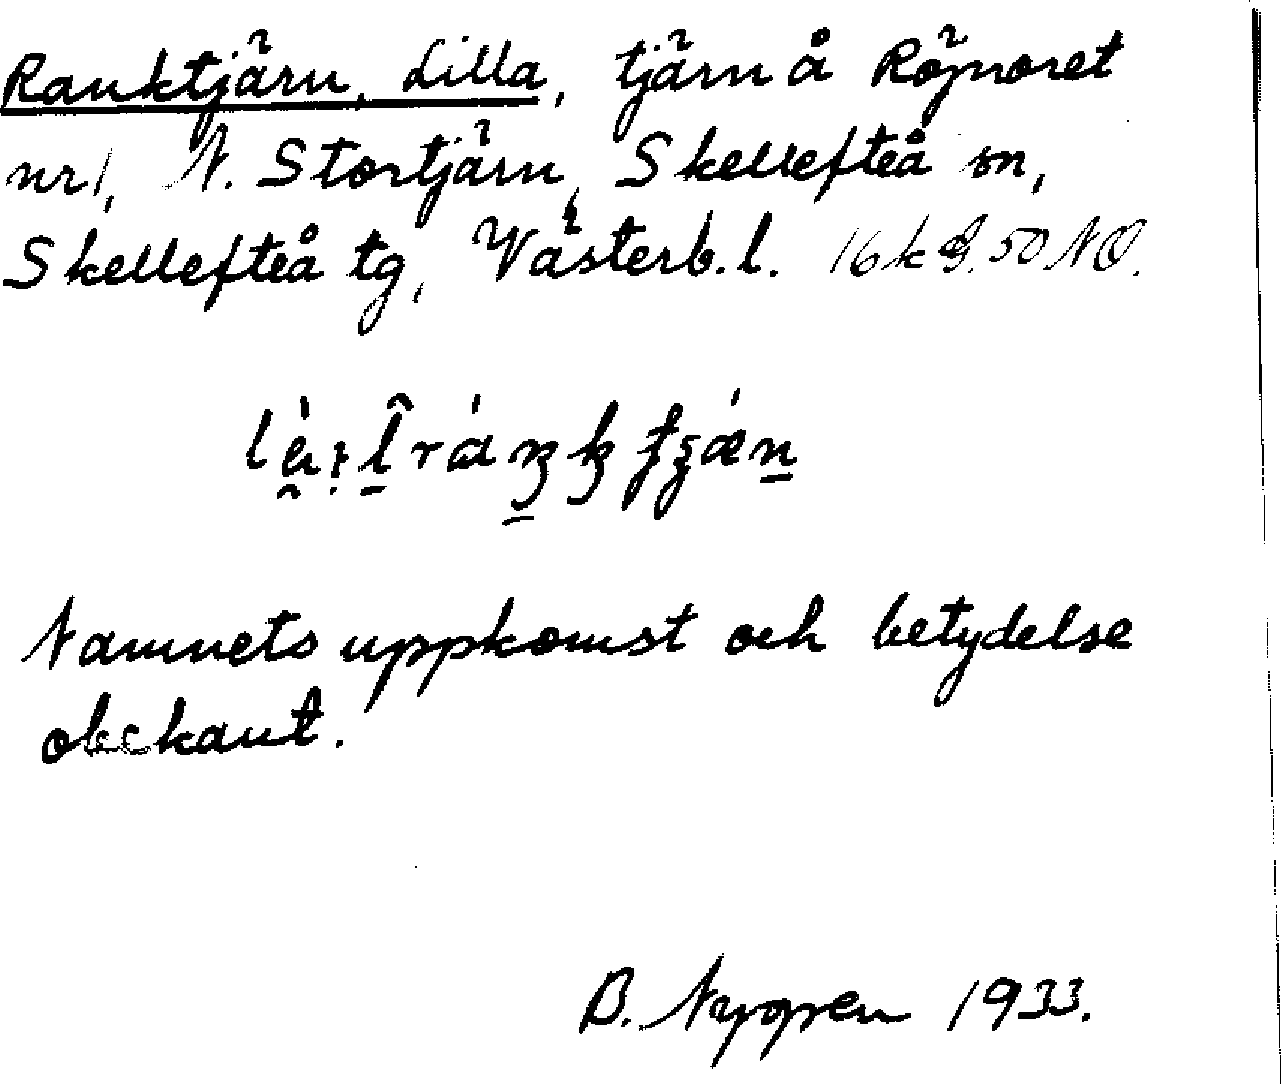 Ranktjärn, Lilla, tjärn å Röjnoret
nr 1, N. Stortjärn, Skellefteå sn,
Skellefteå tg, Västerb. l. 16 k
Namnets uppkomst och betydelse
obekant.
B. Nygren 1933.